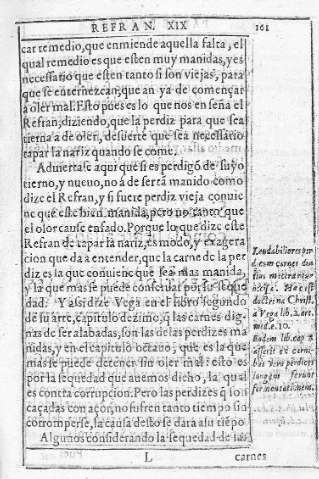 REFRAN. XIX
161
car remedio, que enmiende aquella falta, el
qual remedio es que esten muy manidas, y es
necessario que esten tanto si son viejas, para
que se enternezcan, que an ya de començar
a oler mal. Esto pues es lo que nos enseña el
Refran, diziendo, que la perdiz para que sea
tierna a de oler, de suerte que sea necessario
tapar la nariz quando se come.
Aduierta se aqui que si es perdigõ de suyo
tierno, y nueuo, no á de serrá manido como
dize el Refran, y si fuere perdiz vieja conuie
ne que este bien manida, pero no tanto que
el olor cause enfado. Porque lo que dize este
Refran de tapar la nariz, es modo, y exagera
cion que da a entender, que la carne de la per
diz es la que conuiene que sea mas manida,
y la que mas se puede conseruar por su seque
dad. Y assi dize Vega en el libro segundo
de su arte, capitulo dezimo, q̃ las carnes dig-
nas de ser alabadas, son las de las perdizes ma
nidas, y en el capitulo octauo, que es la que
mas se puede detener sin oler mal: esto es
por la sequedad que auemos dicho, la qual
es contra corrupcion. Pero las perdizes q̃ son
caçadas con açor, no sufren tanto tiempo sin
corromperse, la causa desto se dara a su tiẽpo
Algunos considerando la sequedad de las
L
carnes
Laudabiliores per
d cum carnes diu
tius mitescantur
Hæc est
doctrina Christ.
a Vega lib. 2. art.
med. c. 10.
Eadem lib. cap. 8
asserit ex carni-
bus veris perdices
longius ferunt
fermentationem.